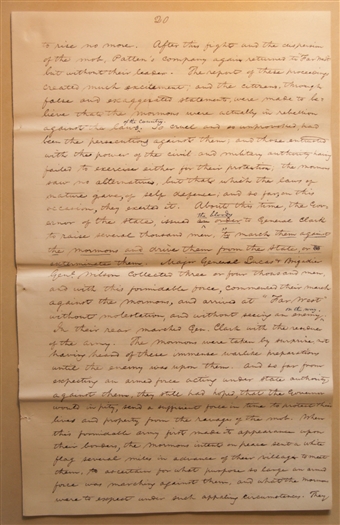 30
to rise no more. After this fight and the dispersion
of the mob, Patten's company again returned to Far West
but without their leader. The report of these proceedings
created much excitement; and the citizens, through
false and exaggerated statements, were made to be-
lieve that the Mormons were actually in rebellion
of the country.
against the laws. So cruel and so unprovoked, had
been the persecutions against them; and those entrusted
with the power of the civil and military authority having
failed to exercise either for their protection, the mormons
saw no alternative, but that which the laws of
nature gave, of self defense; and so far, on this
occasion, they exerted it. About this time, the Gov-
ernor of the state, issued an order to General Clark
to raise several thousand men, to march them against
the mormons and drive them from the state, or
exterminate them. Major General Lucas & Brigadier
Genl. Wilson collected three or four thousand men,
and with this formidable force, commenced their march
against the Mormons, and arrived at "Far West"
without molestation, and without seeing an enemy
on the way.
In their rear marched Gen. Clark with the residue
of the army. The mormons were taken by surprise, not
having heard of these immense warlike preparations
until the enemy was upon them. And so far from
expecting an armed force acting under state authority,
against them, they still had hoped, that the Governor
would in pity, send a sufficient force in time to protect their
lives and property from the ravages of the mob. When
this formidable army first made its appearance upon
their borders, the mormons intent on peace sent a white
flag several miles in advance of their village to meet
them, to ascertain for what purpose so large an armed
force was marching against them, and what the mormons
were to expect under such appaling circumstances. They